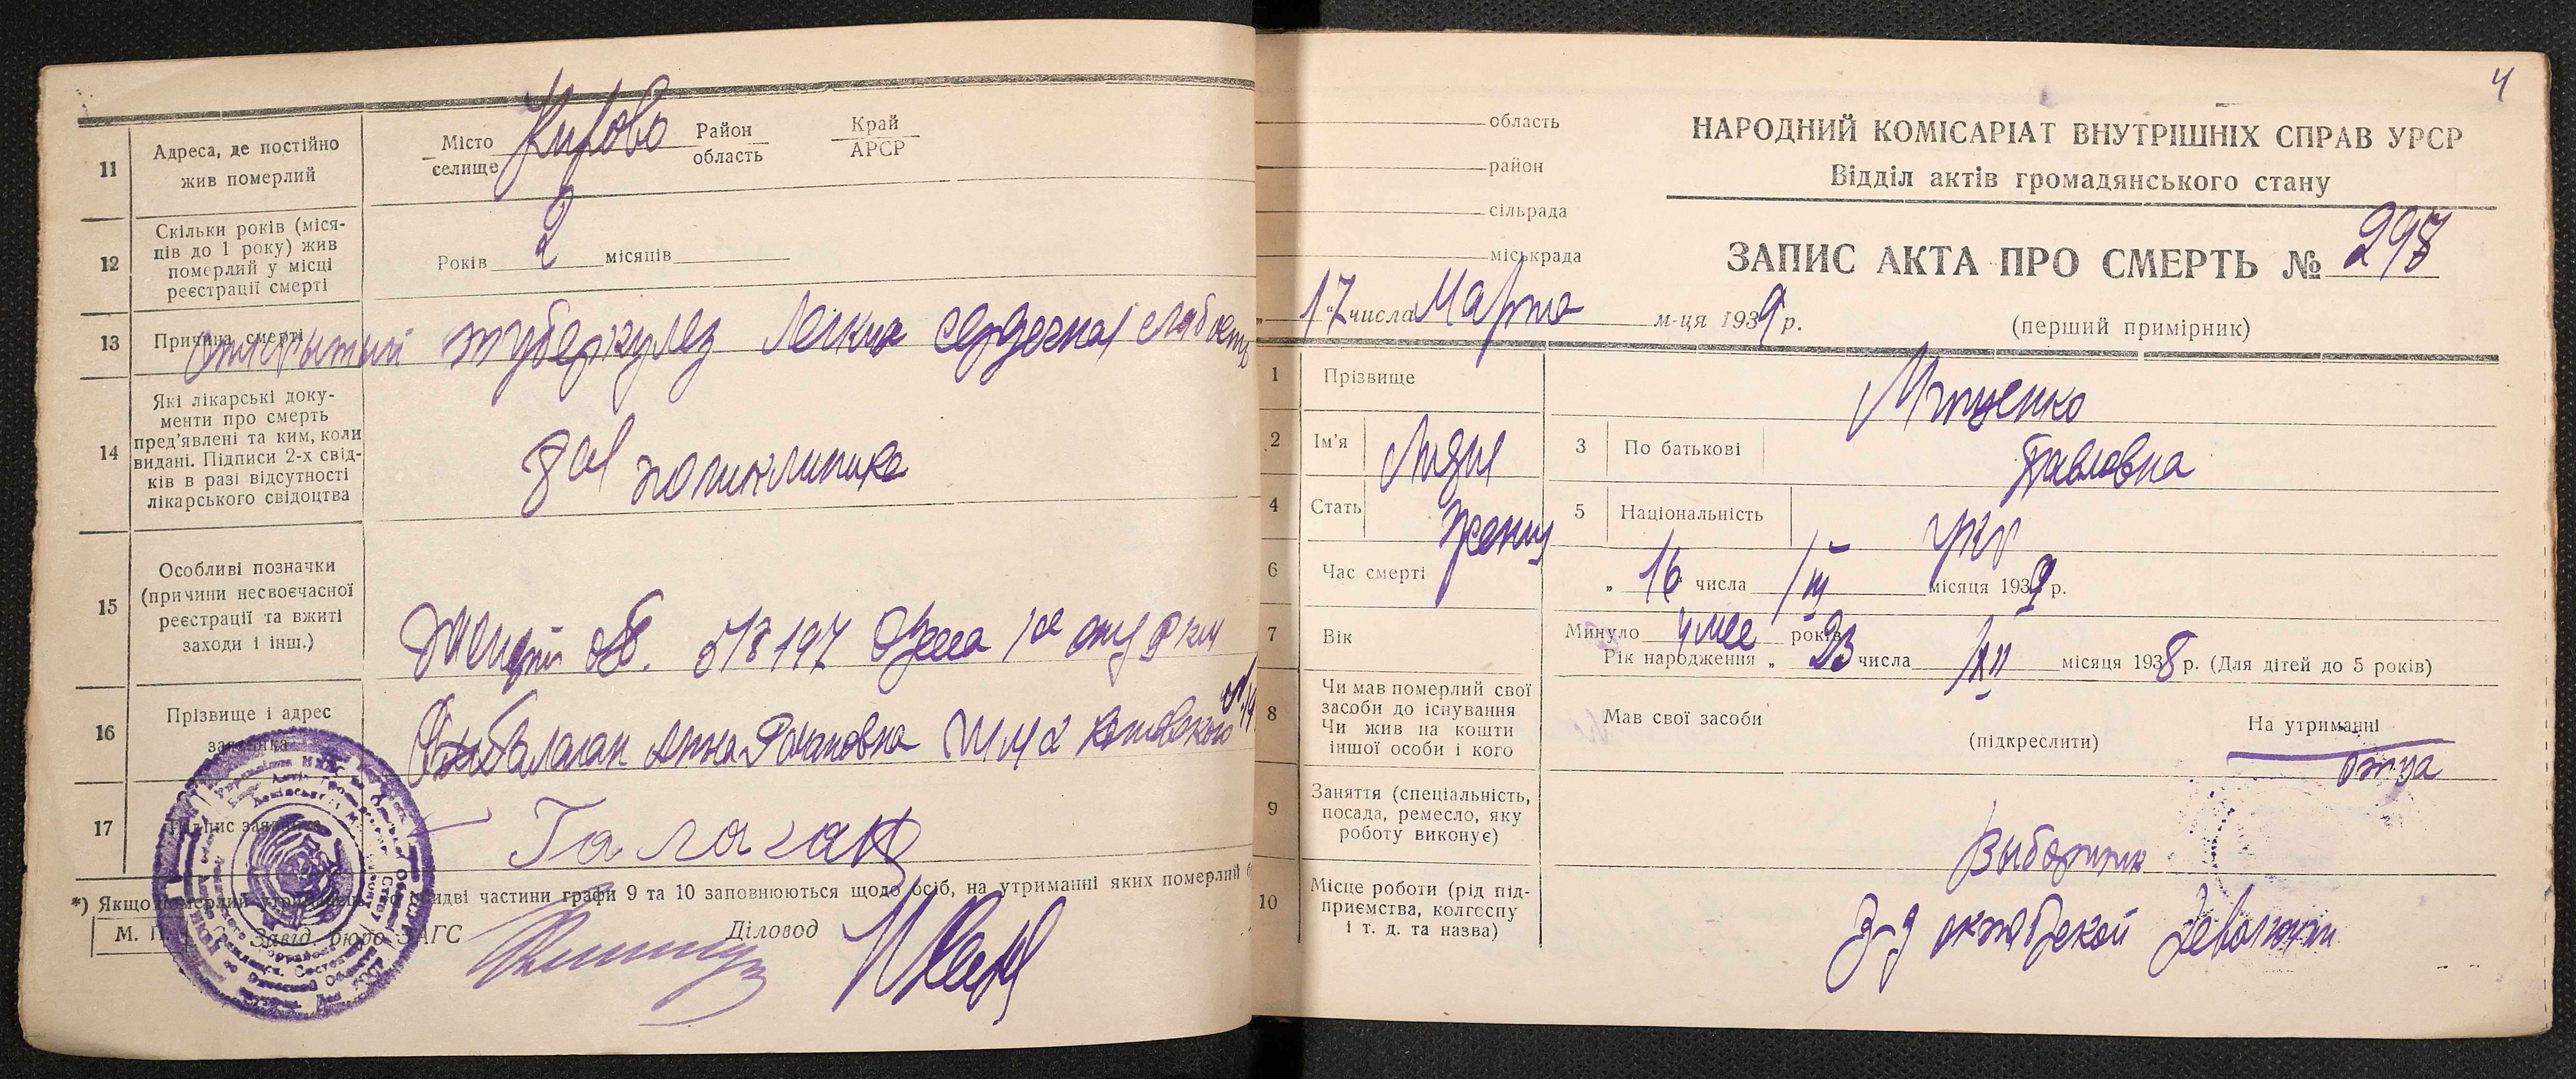 11
Адреса, де постійно
жив померлий
Місто
селище
Кирово
Район
область
Край
АРСР
12
Скільки років (міся-
ців до 1 року) жив
померлий у місці
реєстрації смерті
Років 2 місяців
13
Причина смерті
открытый туберкулез легких сердечная слабость
14
Які лікарські доку-
менти про смерть
пред'явлені та ким, коли
видані. Підписи 2-х свід-
ків в разі відсутності
лікарського свідоцтва
8ая поликлиника
15
Особливі позначки
(причини несвоєчасної
реєстрації та вжиті
заходи і інш.)
518197 Одесса 1ое отд Р км
16
Прізвище і адрес
заявника
Балаган Анна Романовна
17
Підпис заявника
Галаган
*) Якщо померлий
видві частини графи 9 та 10 заповнюються щодо осіб, на утриманні яких померлий
М. П.
Завід. бюро ЗАГС
Діловод
4
область
район
сільрада
міськрада
НАРОДНИЙ КОМІСАРІАТ ВНУТРІШНІХ СПРАВ УРСР
Відділ актів громадянського стану
ЗАПИС АКТА ПРО СМЕРТЬ № 298
„17" числа Марта м-ця 1939 р.
(перший примірник)
1 Прізвище
Мищенко
2 Ім'я Лидия
3 По батькові Павловна
4 Стать женщ
5 Національність укр
6 Час смерті
„ 16 числа III місяця 1939 р.
7 Вік
Минуло 4 мес років
Рік народження „ 23 числа XII місяця 1938 р. (Для дітей до 5 років)
8
Чи мав померлий свої
засоби до існування
Чи жив на кошти
іншої особи і кого
Мав свої засоби
(підкреслити)
На утриманні
отца
9
Заняття (спеціальність,
посада, ремесло, яку
роботу виконує)
10
Місце роботи (рід під-
приємства, колгоспу
і т. д. та назва)
з-д октябрской революции